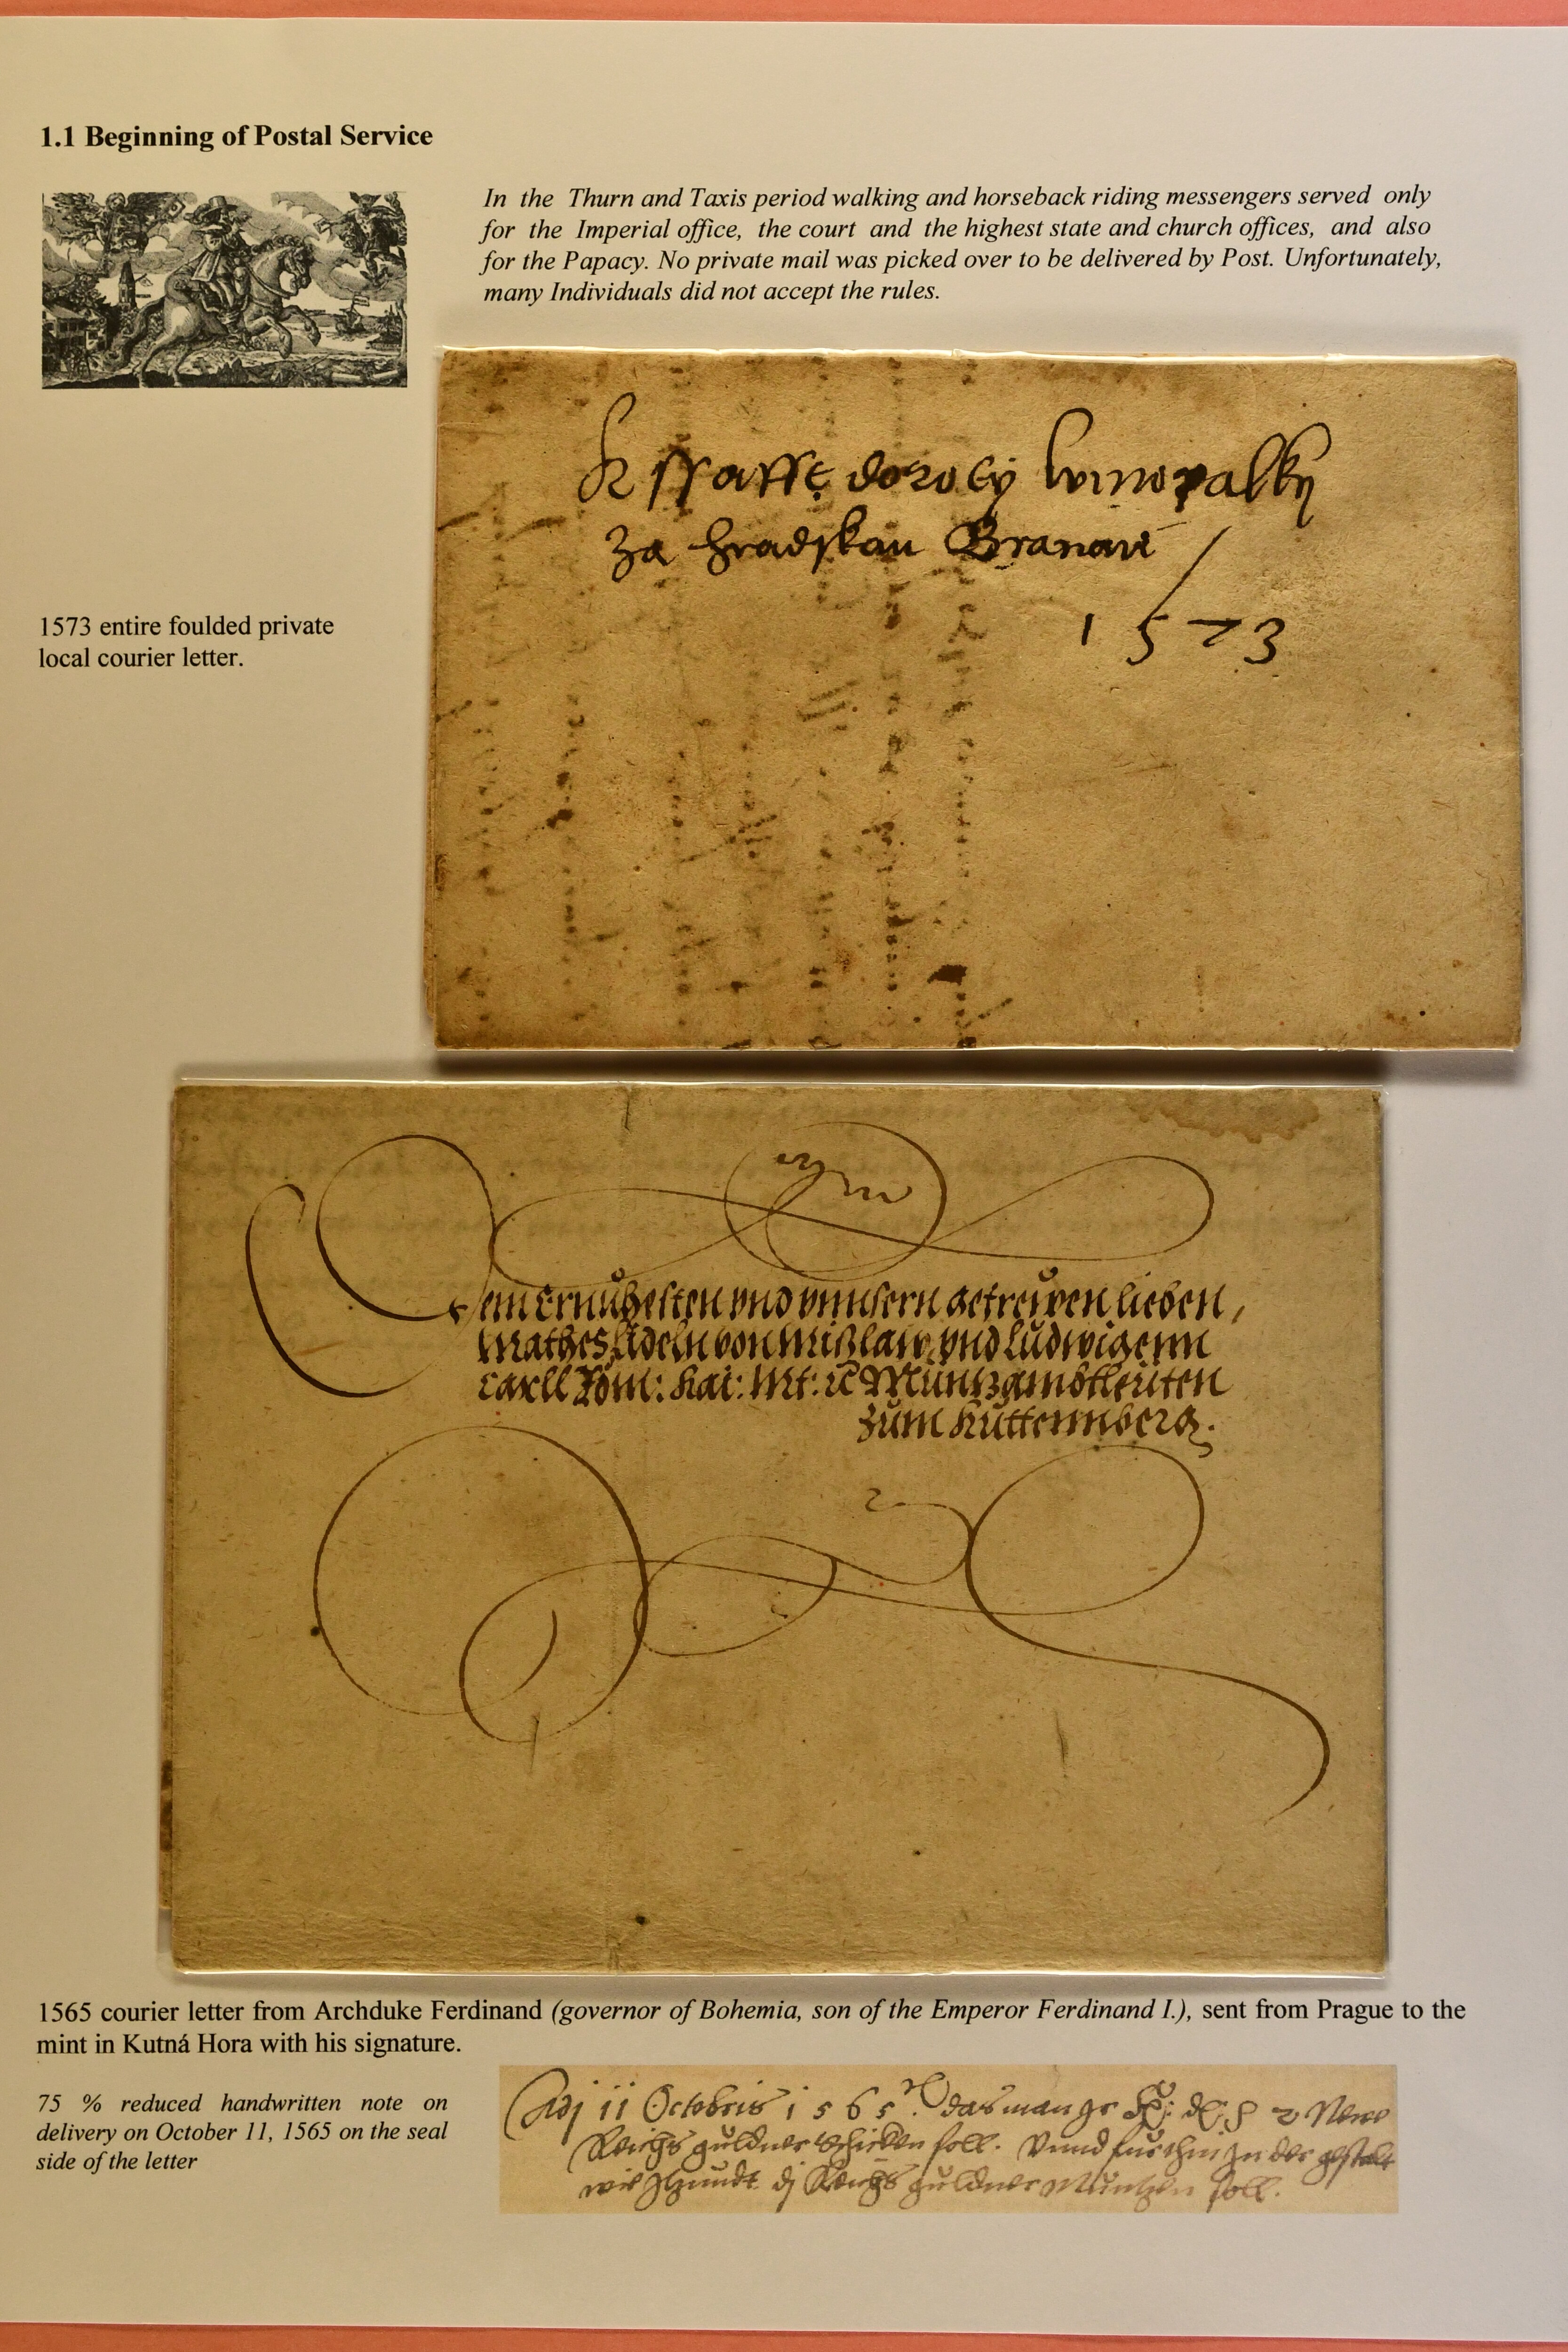 1.1 Beginning of Postal Service
In the Thurn and Taxis period walking and horseback riding messengers served only
for the Imperial office, the court and the highest state and church offices, and also
for the Papacy. No private mail was picked over to be delivered by Post. Unfortunately,
many Individuals did not accept the rules.
za hradskau Branau
1573
1573 entire foulded private
local courier letter.
vnd vnnsern getrewen lieben,
von vnd Ludwigenn
Röm: Kai: Mt: Müntzambtleüten
zum Kuttennberg.
1565 courier letter from Archduke Ferdinand (governor of Bohemia, son of the Emperor Ferdinand I.), sent from Prague to the
mint in Kutná Hora with his signature.
75 % reduced handwritten note on
delivery on October 11, 1565 on the seal
side of the letter
Adj 11 Octobris 1565. das man Newe
Reichs guldner schicken soll. Vnnd furthin in der gestalt
wie Reichs guldner Muntzen soll.